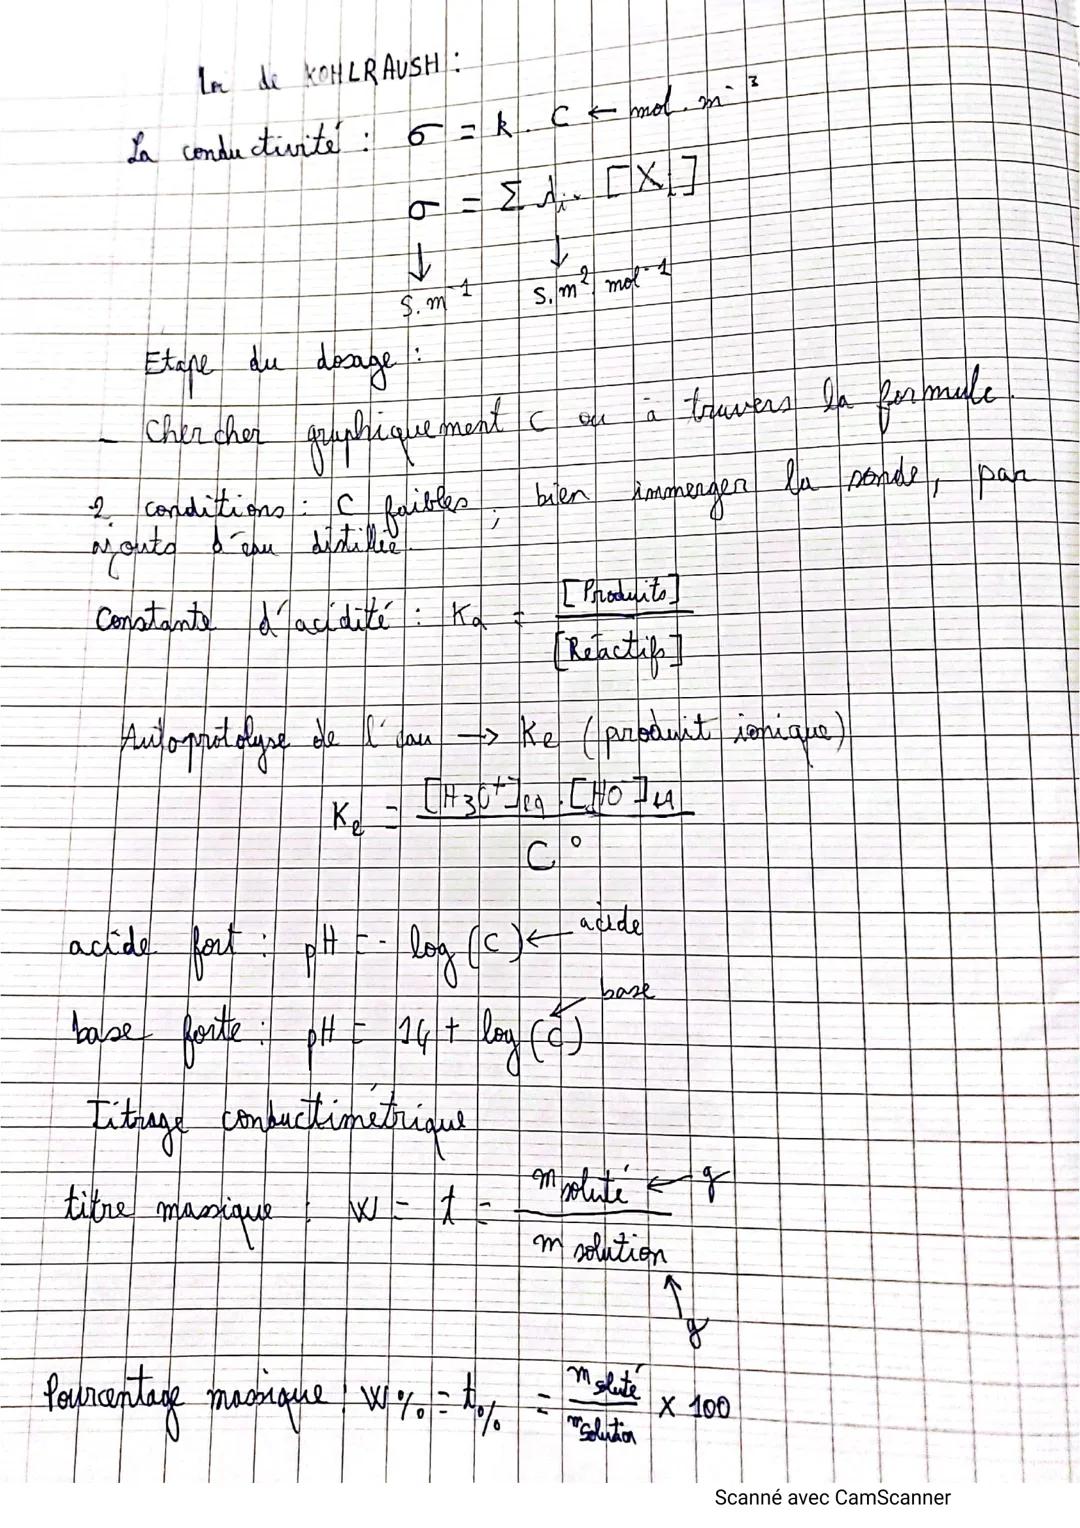 Loi de KOHLRAUSH :
La conductivité : σ = k . C ← mol . m⁻³
σ = Σ λi . [Xi]
↓ ↓
S.m⁻¹ S.m² mol⁻¹
Etape du dosage :
– Chercher graphiquement C ou à travers la formule.
2 conditions : C faibles ; bien immerger la sonde, par
ajouts d'eau distillée.
Constante d'acidité : Ka = [Produits] / [Réactifs]
Autoprotolyse de l'eau → Ke (produit ionique)
Ke = [H3O⁺]eq . [HO⁻]eq / C°
acide fort : pH = - log (C) ← acide
base forte : pH = 14 + log (C) ← base
Titrage conductimétrique
titre massique : W = t = m soluté ← g / m solution ← g
Pourcentage massique : W% = t% = m soluté / m solution × 100
Scanné avec CamScanner